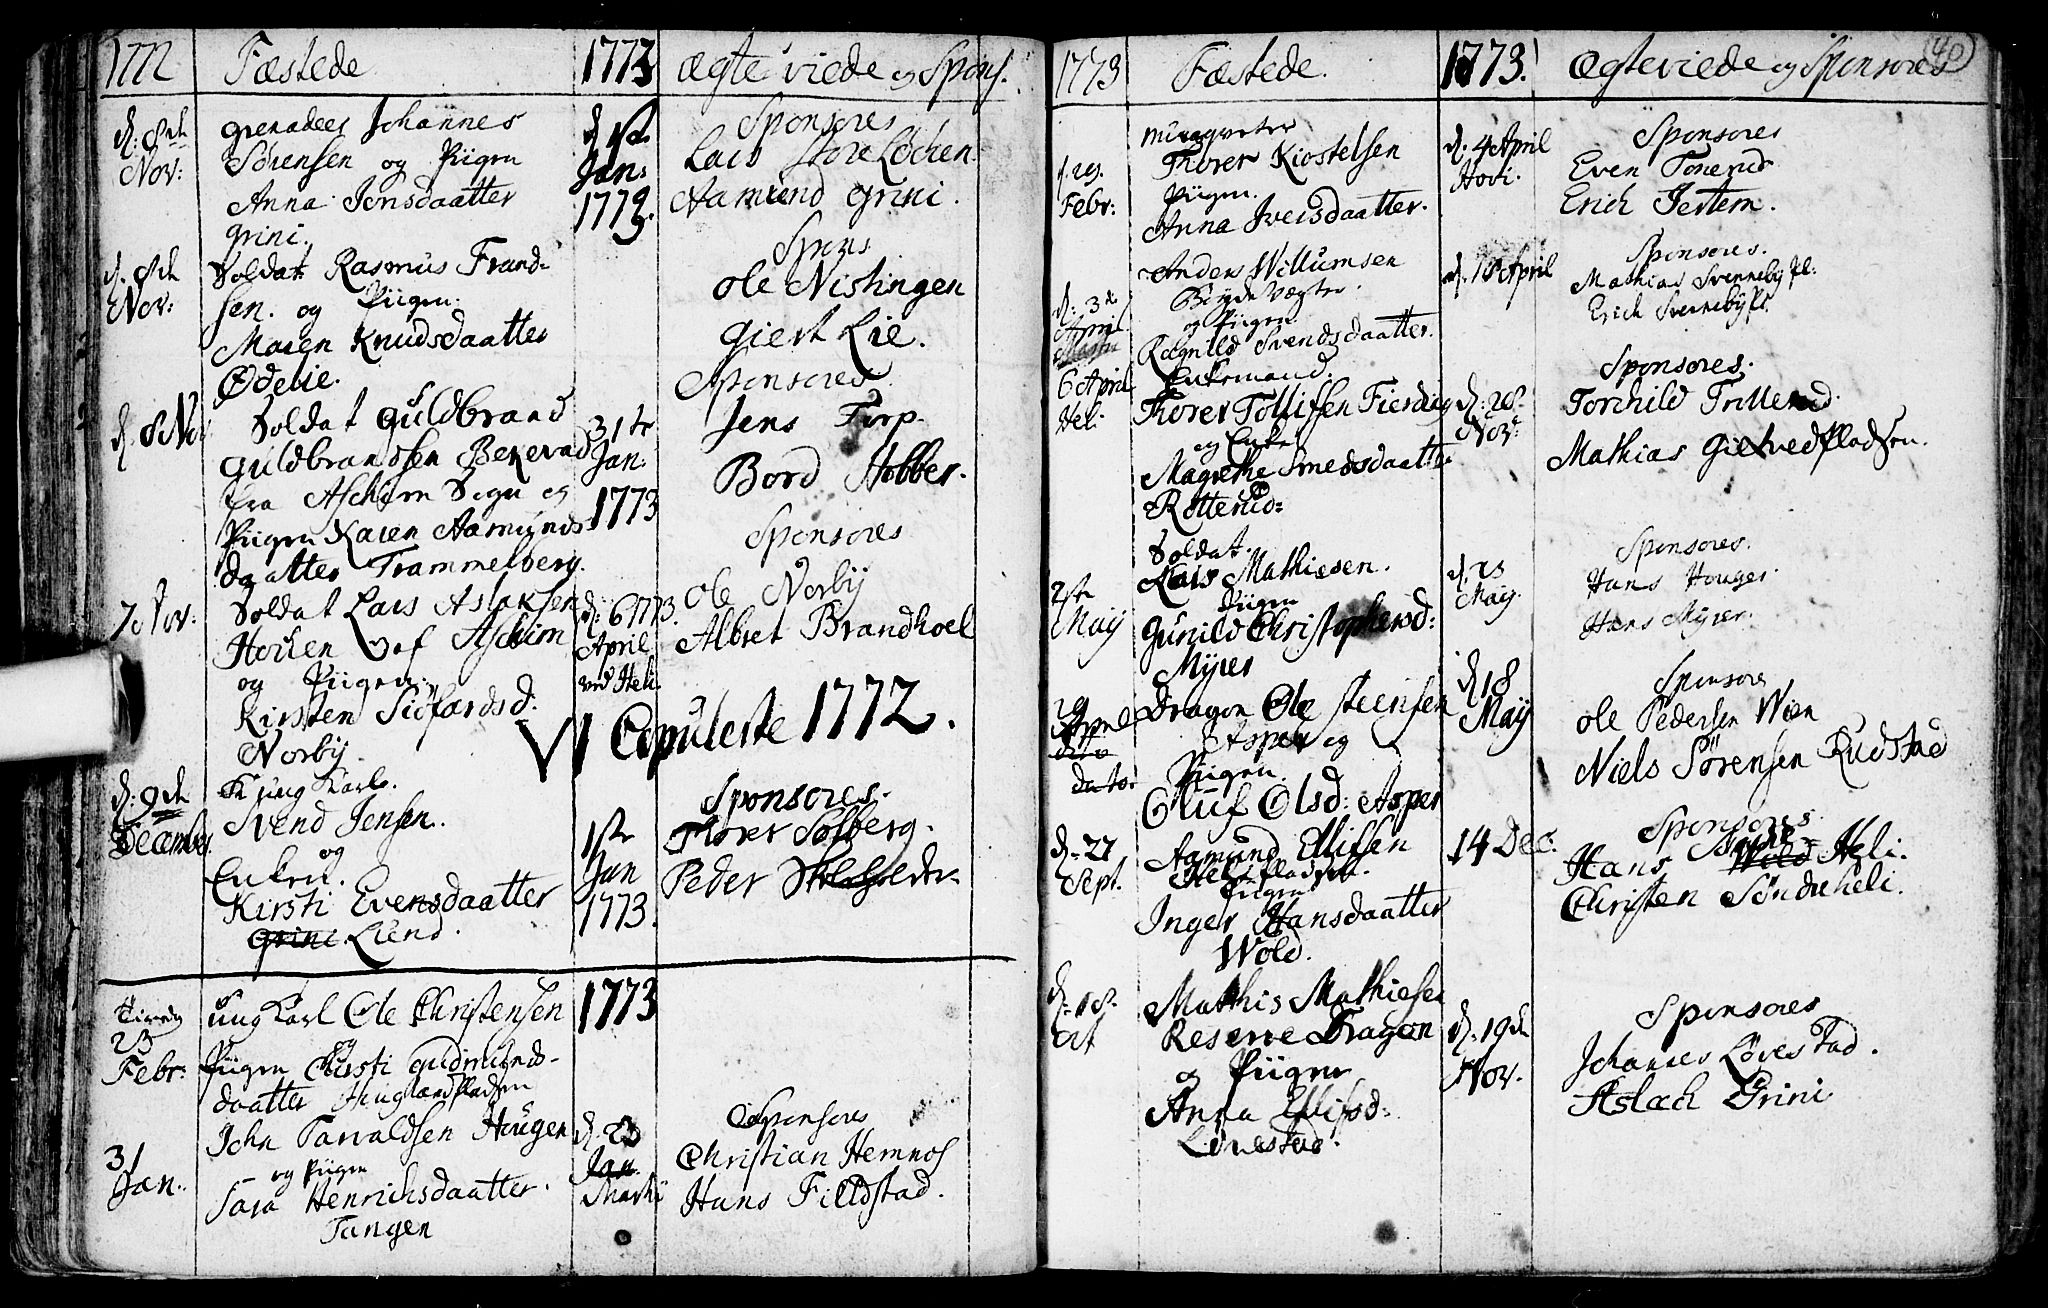 1772
Fæstede
1773
Ægte viede og Spons.
d. 8de
Nov:
Grenadeer Johannes
Sørensen og Piigen
Anna Jensdaatter
Grini.
d. 1ste
Jan:
1773.
Sponsores
Lars Store Løchen
Aamund Grini.
d. 8de
Nov:
Soldat Rasmus Frand-
sen. og Piigen.
Maren Knudsdaatter
Ødelie.
Spons
Ole Nistingen
Giert Lie.
d. 8 Nov
Soldat Guldbrand
Guldbrandsen Bekevad
fra Aschim Sogn og
Piigen Karen Aamunds-
daatter Trammelberg.
31te
Jan:
1773
Sponsores
Jens Torp.
Bord Hobber.
7 Nov:
Soldat Lars Aslaksen
Houen af Aschim
og Piigen
Kirsten Siofardsd:
Norby.
d. 6 1773.
April
ved Heli.
Sponsores
Ole Norby
Albret Brandhoel
VI Copulerte 1772.
d. 9de
December
Ung Karl.
Svend Jensen.
og
Enken.
Kirsti Evensdaatter
Grini Lund.
1ste
Jan
1773.
Sponsores.
Thorer Solberg.
Peder
23
Febr:
ung Karl Ole Christensen
og
Piigen Kirsti Gudmunds-
daatter Huuglandpladsen
1773
31
Jan.
John Tarvaldsen Hougen
og Piigen
Sara Henrichsdaatter.
Tangen
d. 23
Jan.
Martii
Sponsores
Christian Hemnes
Hans Fieldstad.
1773
Fæstede.
1773.
Ægteviede og Sponsores
40
d. 29.
Febr:
Thorer Kiostelsen
Piigen.
Anna Iversdaatter.
d. 4 April
Hovi.
Sponsores
Even Tonerud
Erich Jertern.
d. 3de
April
Anders Willumsen
Bøyde Vægter.
og Piigen
Ragnild Svendsdaatter.
d. 18 April
Sponsores.
Mathias Svenneby Pl:
Erich Svenneby Pl.
6 April
Heli.
Enkemand.
Thorer Tollifsen Fierdin
og Enke
Magrethe Smedsdaatter
Rotterud
d. 28.
Nov:
Sponsores.
Torchild Trillerud.
Mathias Gietvedpladsen.
2den
Maij
Soldat.
Lars Mathiesen.
Piigen
Gunild Christophersd:
Myrer
d. 23
Maij.
Sponsores.
Hans Houger.
Hans Myrer.
29
April
dito
dato.
Dragon Ole Steensen
Asper og
Piigen.
Oluf Olsd: Asper
d. 18
Maij
Sponsores
Ole Pedersen Wien
Niels Sørensen Rudstad
d. 27
Sept.
Aamund Ellissen
Heli pladsen.
Piigen
Inger Hansdaatter
Wold.
14 Dec.
Sponsores
Hans Wold Heli.
Christen Søndreheli.
d. 18.
Oct
Mathis Mathiesen
Reserve Dragon
og Piigen
Anna Ellifsd:
Lovestad.
d. 19de
Nov.
Sponsores
Johannes Løvestad.
Aslach Grini